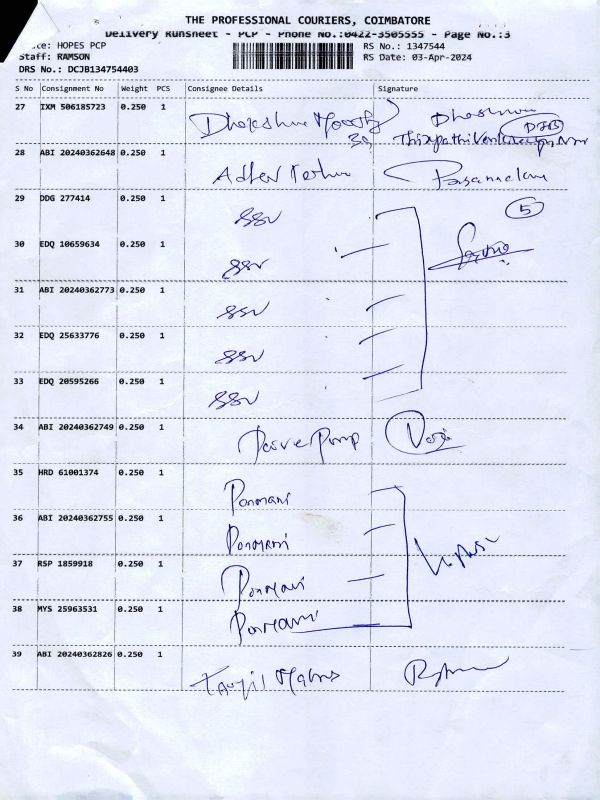 THE PROFESSIONAL COURIERS, COIMBATORE
Delivery Runsheet - PCP - Phone No.:0422-3505555 - Page No.:3
ce: HOPES PCP
RS No.: 1347544
Staff: RAMSON
RS Date: 03-Apr-2024
DRS No.: DCJB134754403
S No Consignment No Weight PCS Consignee Details Signature
27 IXM 506185723 0.250 1
28 ABI 20240362648 0.250 1
29 DDG 277414 0.250 1 SSV 5
30 EDQ 10659634 0.250 1 SSV
31 ABI 20240362773 0.250 1 SSV
32 EDQ 25633776 0.250 1 SSV
33 EDQ 20595266 0.250 1 SSV
34 ABI 20240362749 0.250 1 Pump
35 HRD 61001374 0.250 1 Ponmani
36 ABI 20240362755 0.250 1 Ponmani
37 RSP 1859918 0.250 1 Ponmani
38 MYS 25963531 0.250 1 Ponmani
39 ABI 20240362826 0.250 1